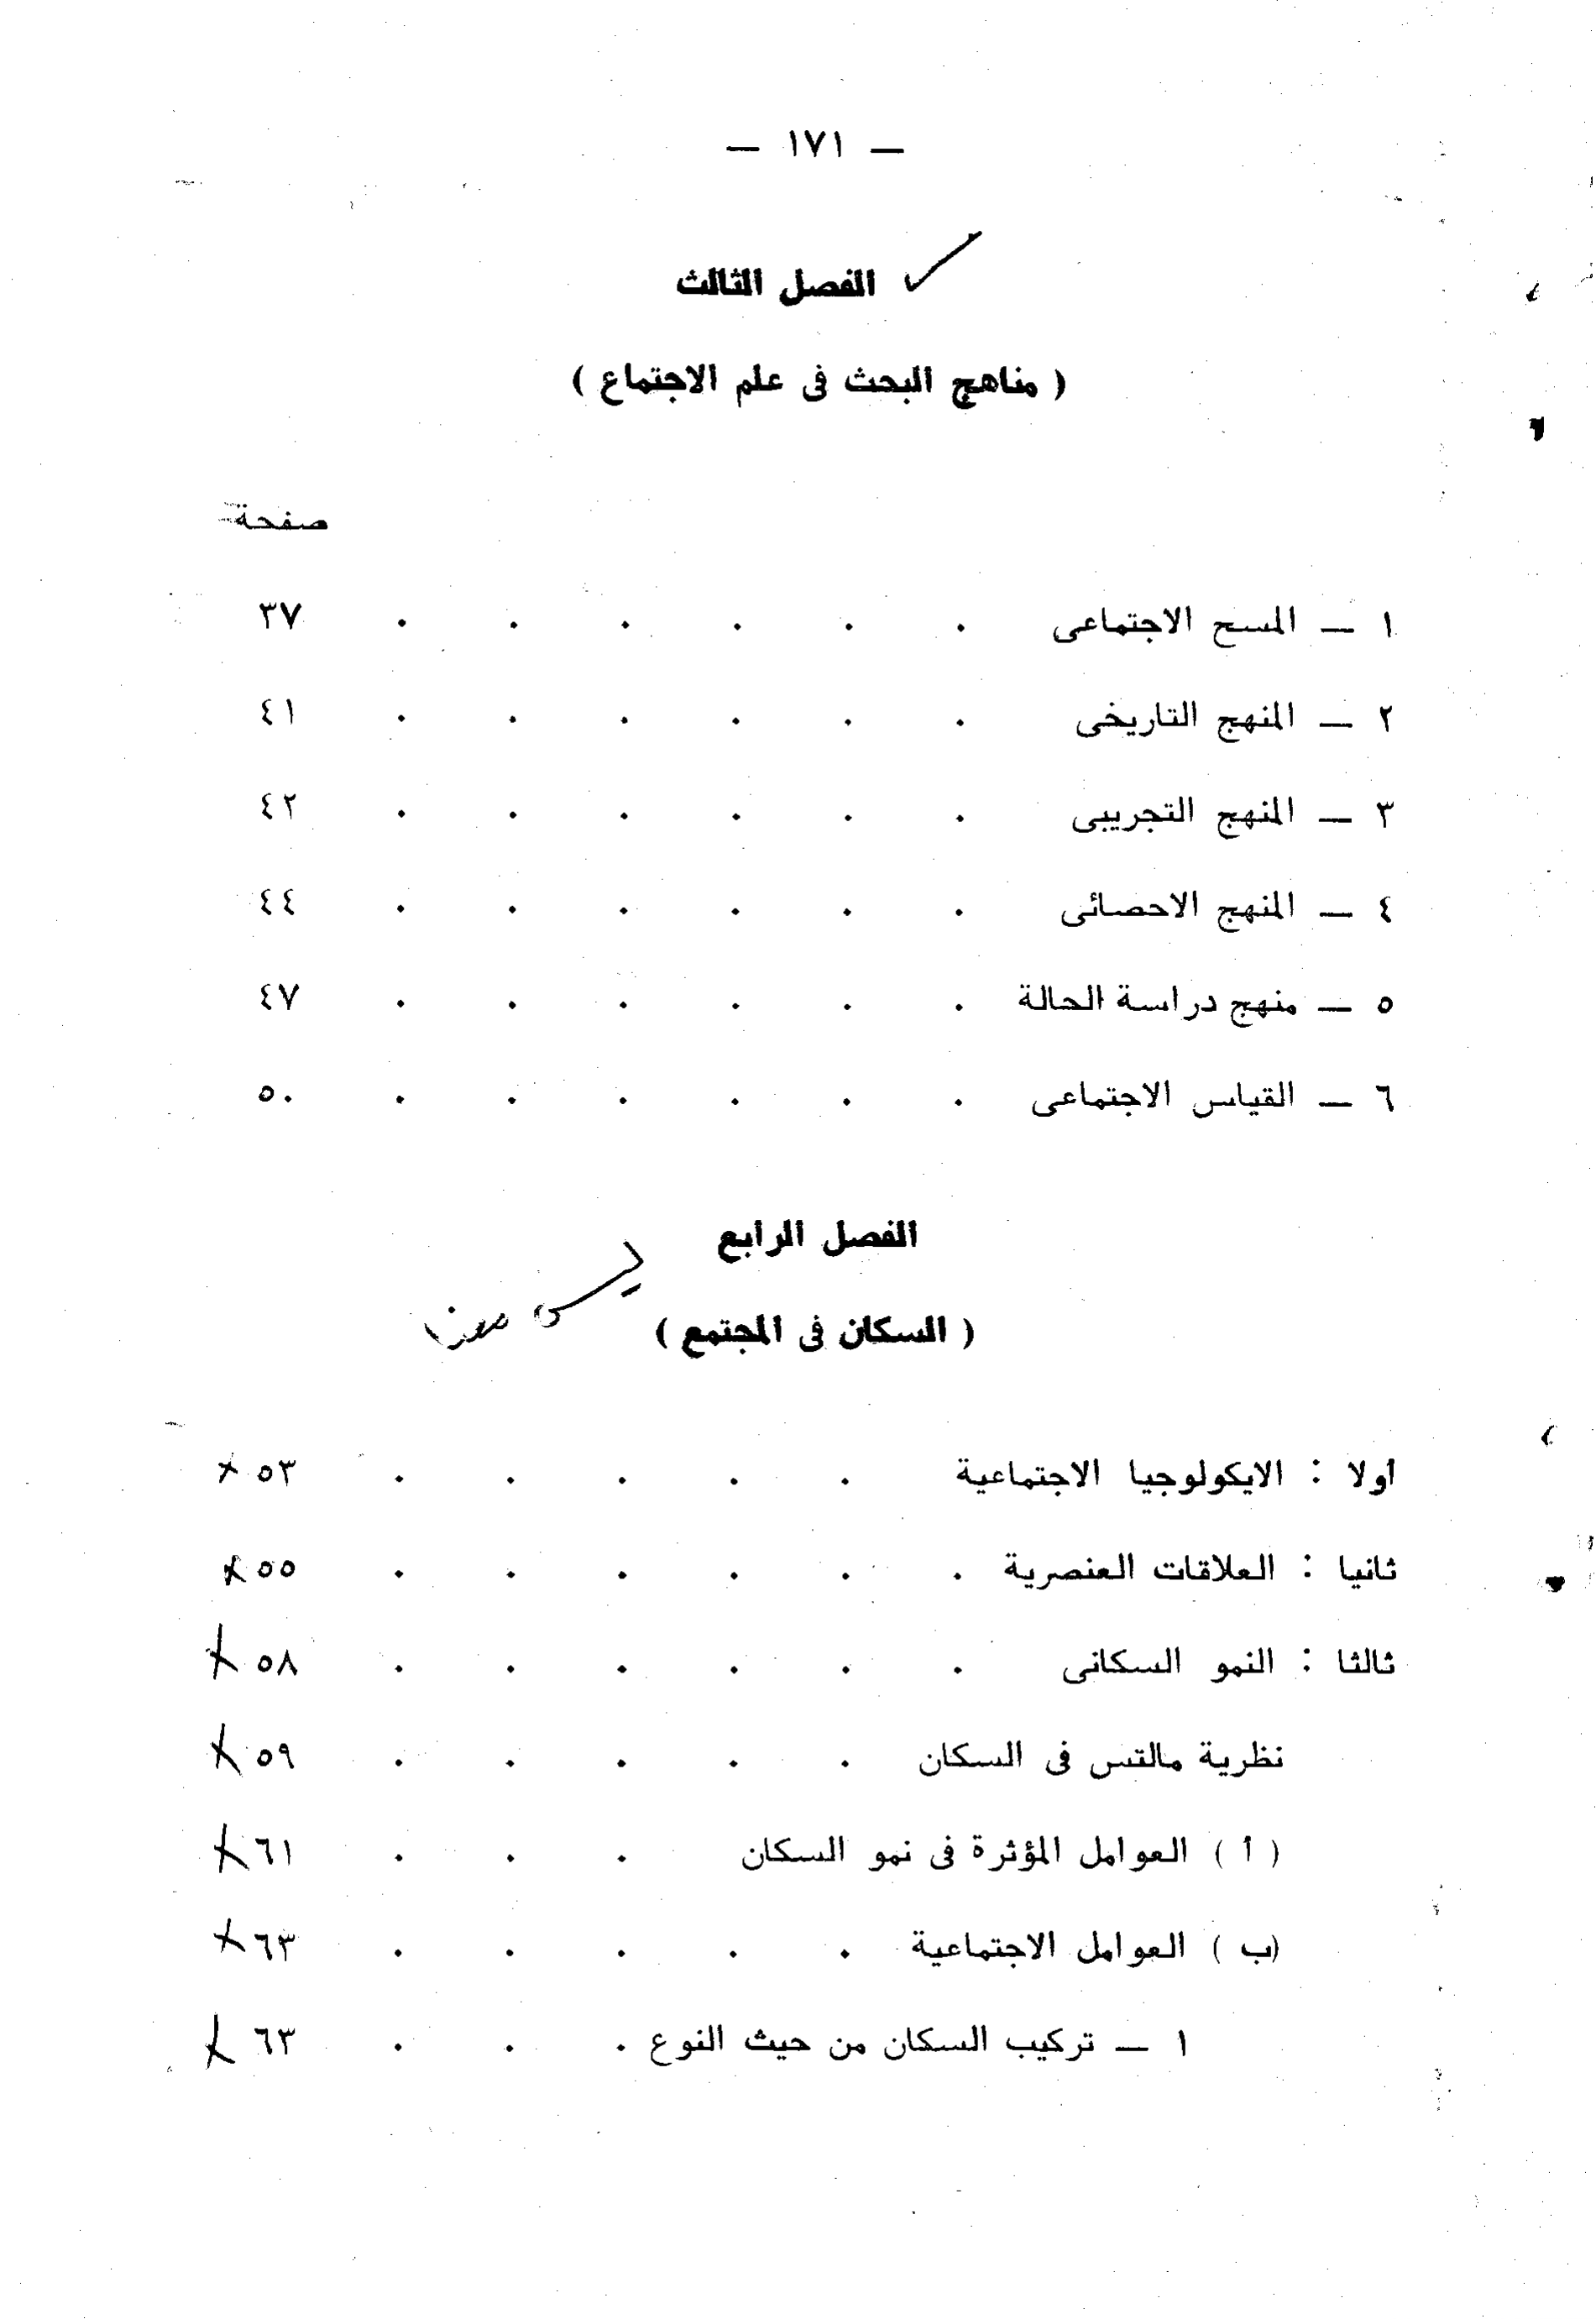 — ١٧١ —
الفصل الثالث
( مناهج البحث فى علم الاجتماع )
صفحة
١ — المسح الاجتماعى . . . . . . ٣٧
٢ — المنهج التاريخى . . . . . . ٤١
٣ — المنهج التجريبى . . . . . . ٤٢
٤ — المنهج الاحصائى . . . . . . ٤٤
٥ — منهج دراسة الحالة . . . . . . ٤٧
٦ — القياس الاجتماعى . . . . . . ٥٠
الفصل الرابع
ليس
( السكان فى المجتمع )
أولا : الايكولوجيا الاجتماعية . . . . . ٥٣
ثانيا : العلاقات العنصرية . . . . . . ٥٥
ثالثا : النمو السكانى . . . . . . ٥٨
نظرية مالتس فى السكان . . . . . ٥٩
( أ ) العوامل المؤثرة فى نمو السكان . . . ٦١
(ب ) العوامل الاجتماعية . . . . . ٦٣
١ — تركيب السكان من حيث النوع . . . ٦٣